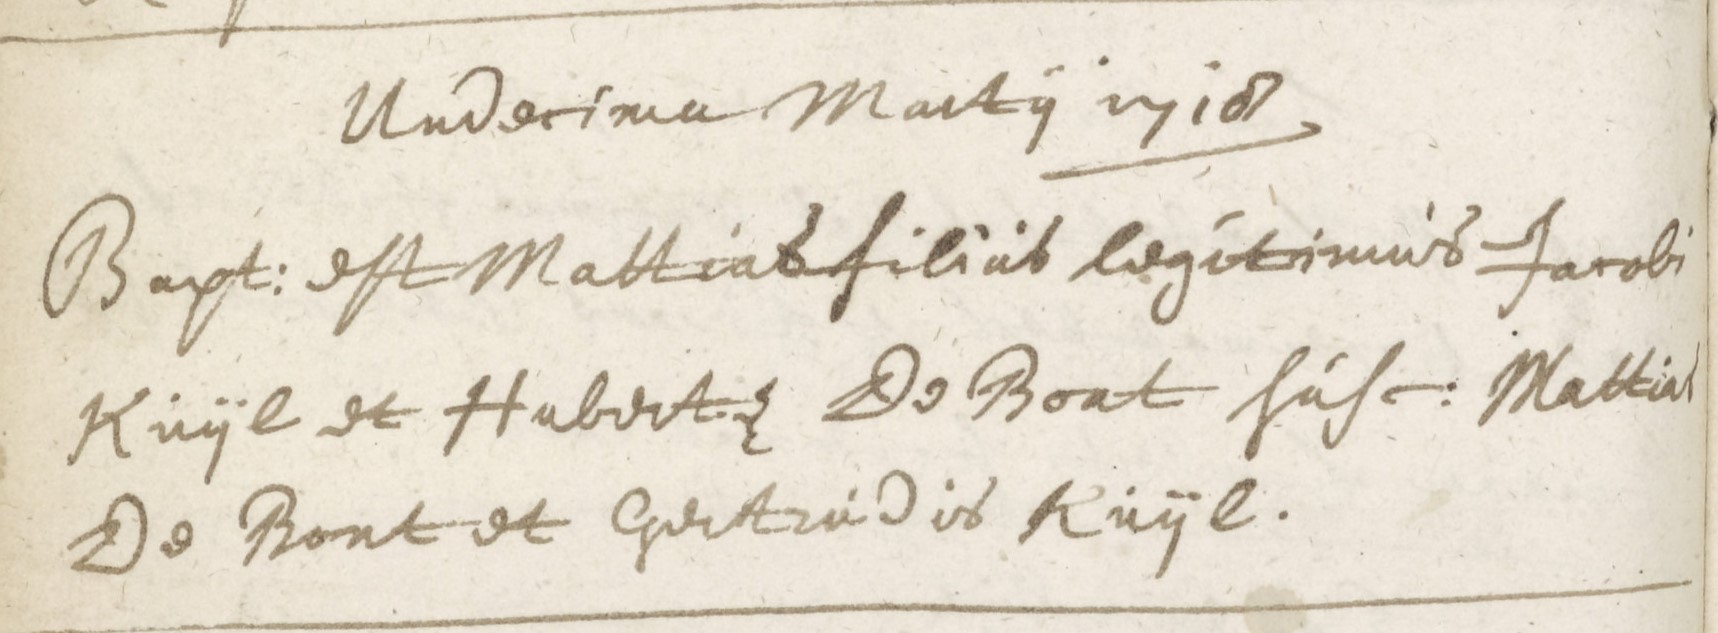 Undecima Martij 1718
Bapt: est Mattias filius legitimus Jacobi
Kuijl et Hubertæ De Bont susc: Mattias
De Bont et Gertrudis Kuijl.